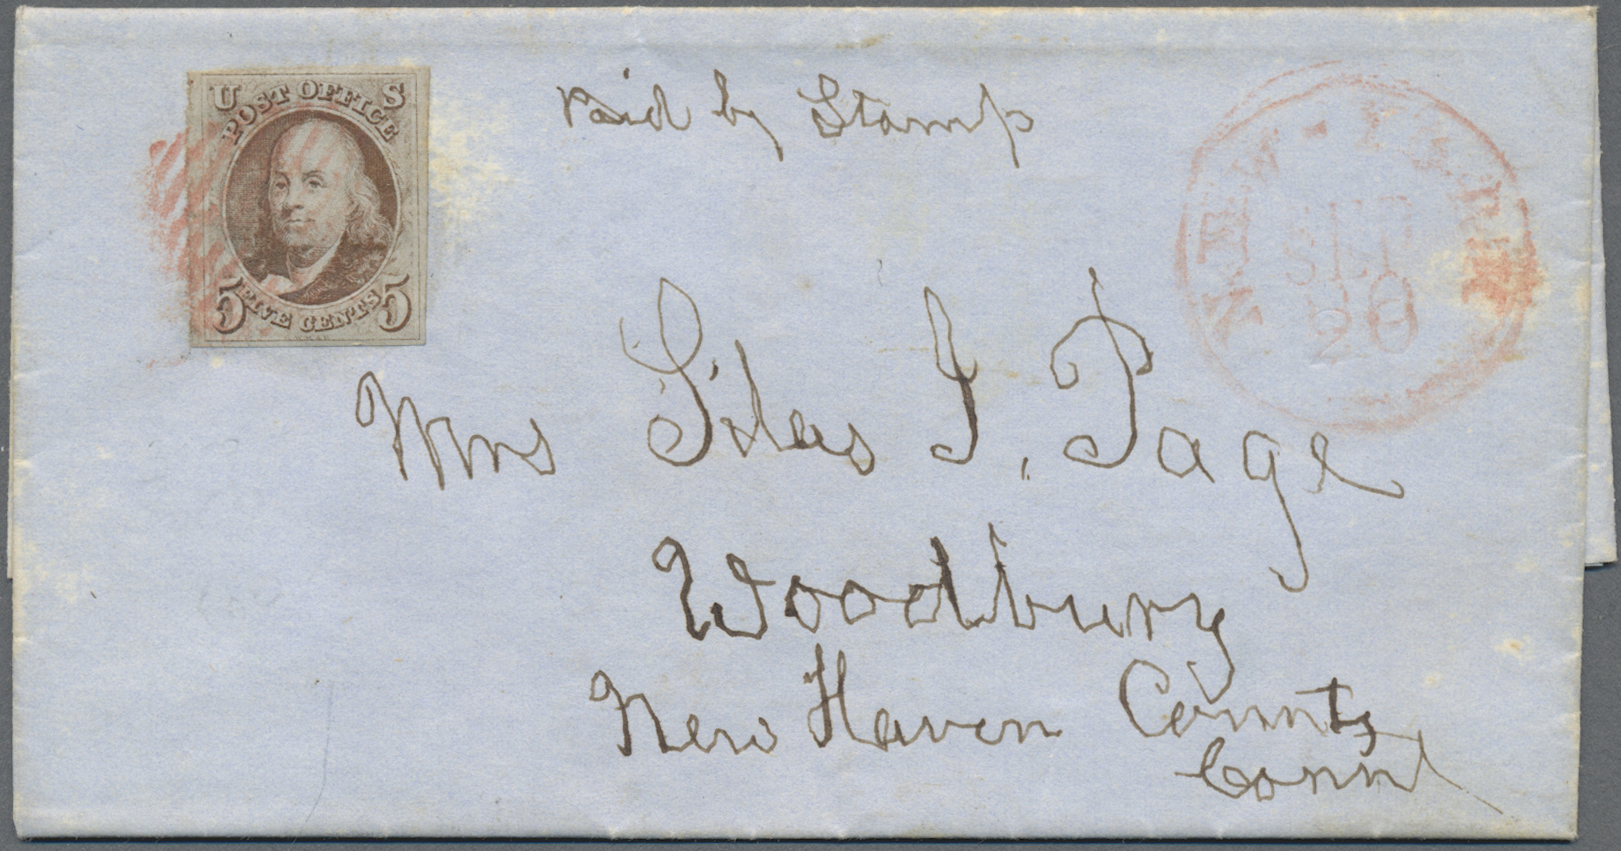 U S
POST OFFICE
5 FIVE CENTS 5
Paid by Stamp
NEW-YORK
SEP
20
Mrs Silas J. Page
Woodbury
New Haven County
Conn